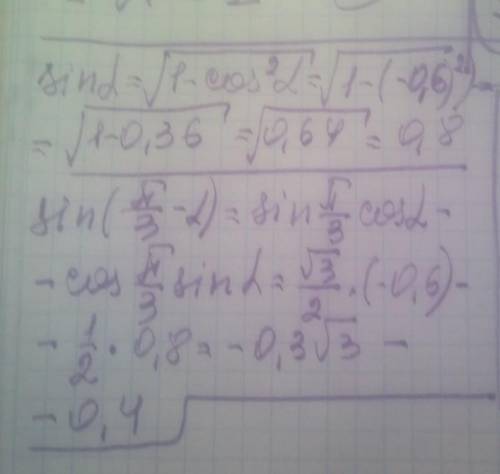 sinα=√1-cos²α=√1-(-0,6)²=
=√1-0,36=√0,64=0,8
sin(π/3-α)=sin π/3 cosα-
-cos π/3 sinα=√3/2·(-0,6)-
-1/2·0,8=-0,3√3-
-0,4